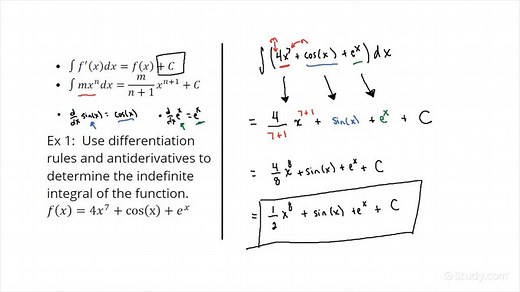 • ∫ f'(x)dx = f(x) + C
• ∫ mxⁿdx = m/(n + 1) xⁿ⁺¹ + C
• d/dx sin(x) = cos(x) • d/dx eˣ = eˣ
Ex 1: Use differentiation
rules and antiderivatives to
determine the indefinite
integral of the function.
f(x) = 4x⁷ + cos(x) + eˣ
m n
∫(4x⁷ + cos(x) + eˣ) dx
= 4/(7+1) x⁷⁺¹ + sin(x) + eˣ + C
= 4/8 x⁸ + sin(x) + eˣ + C
= 1/2 x⁸ + sin(x) + eˣ + C
Study.com